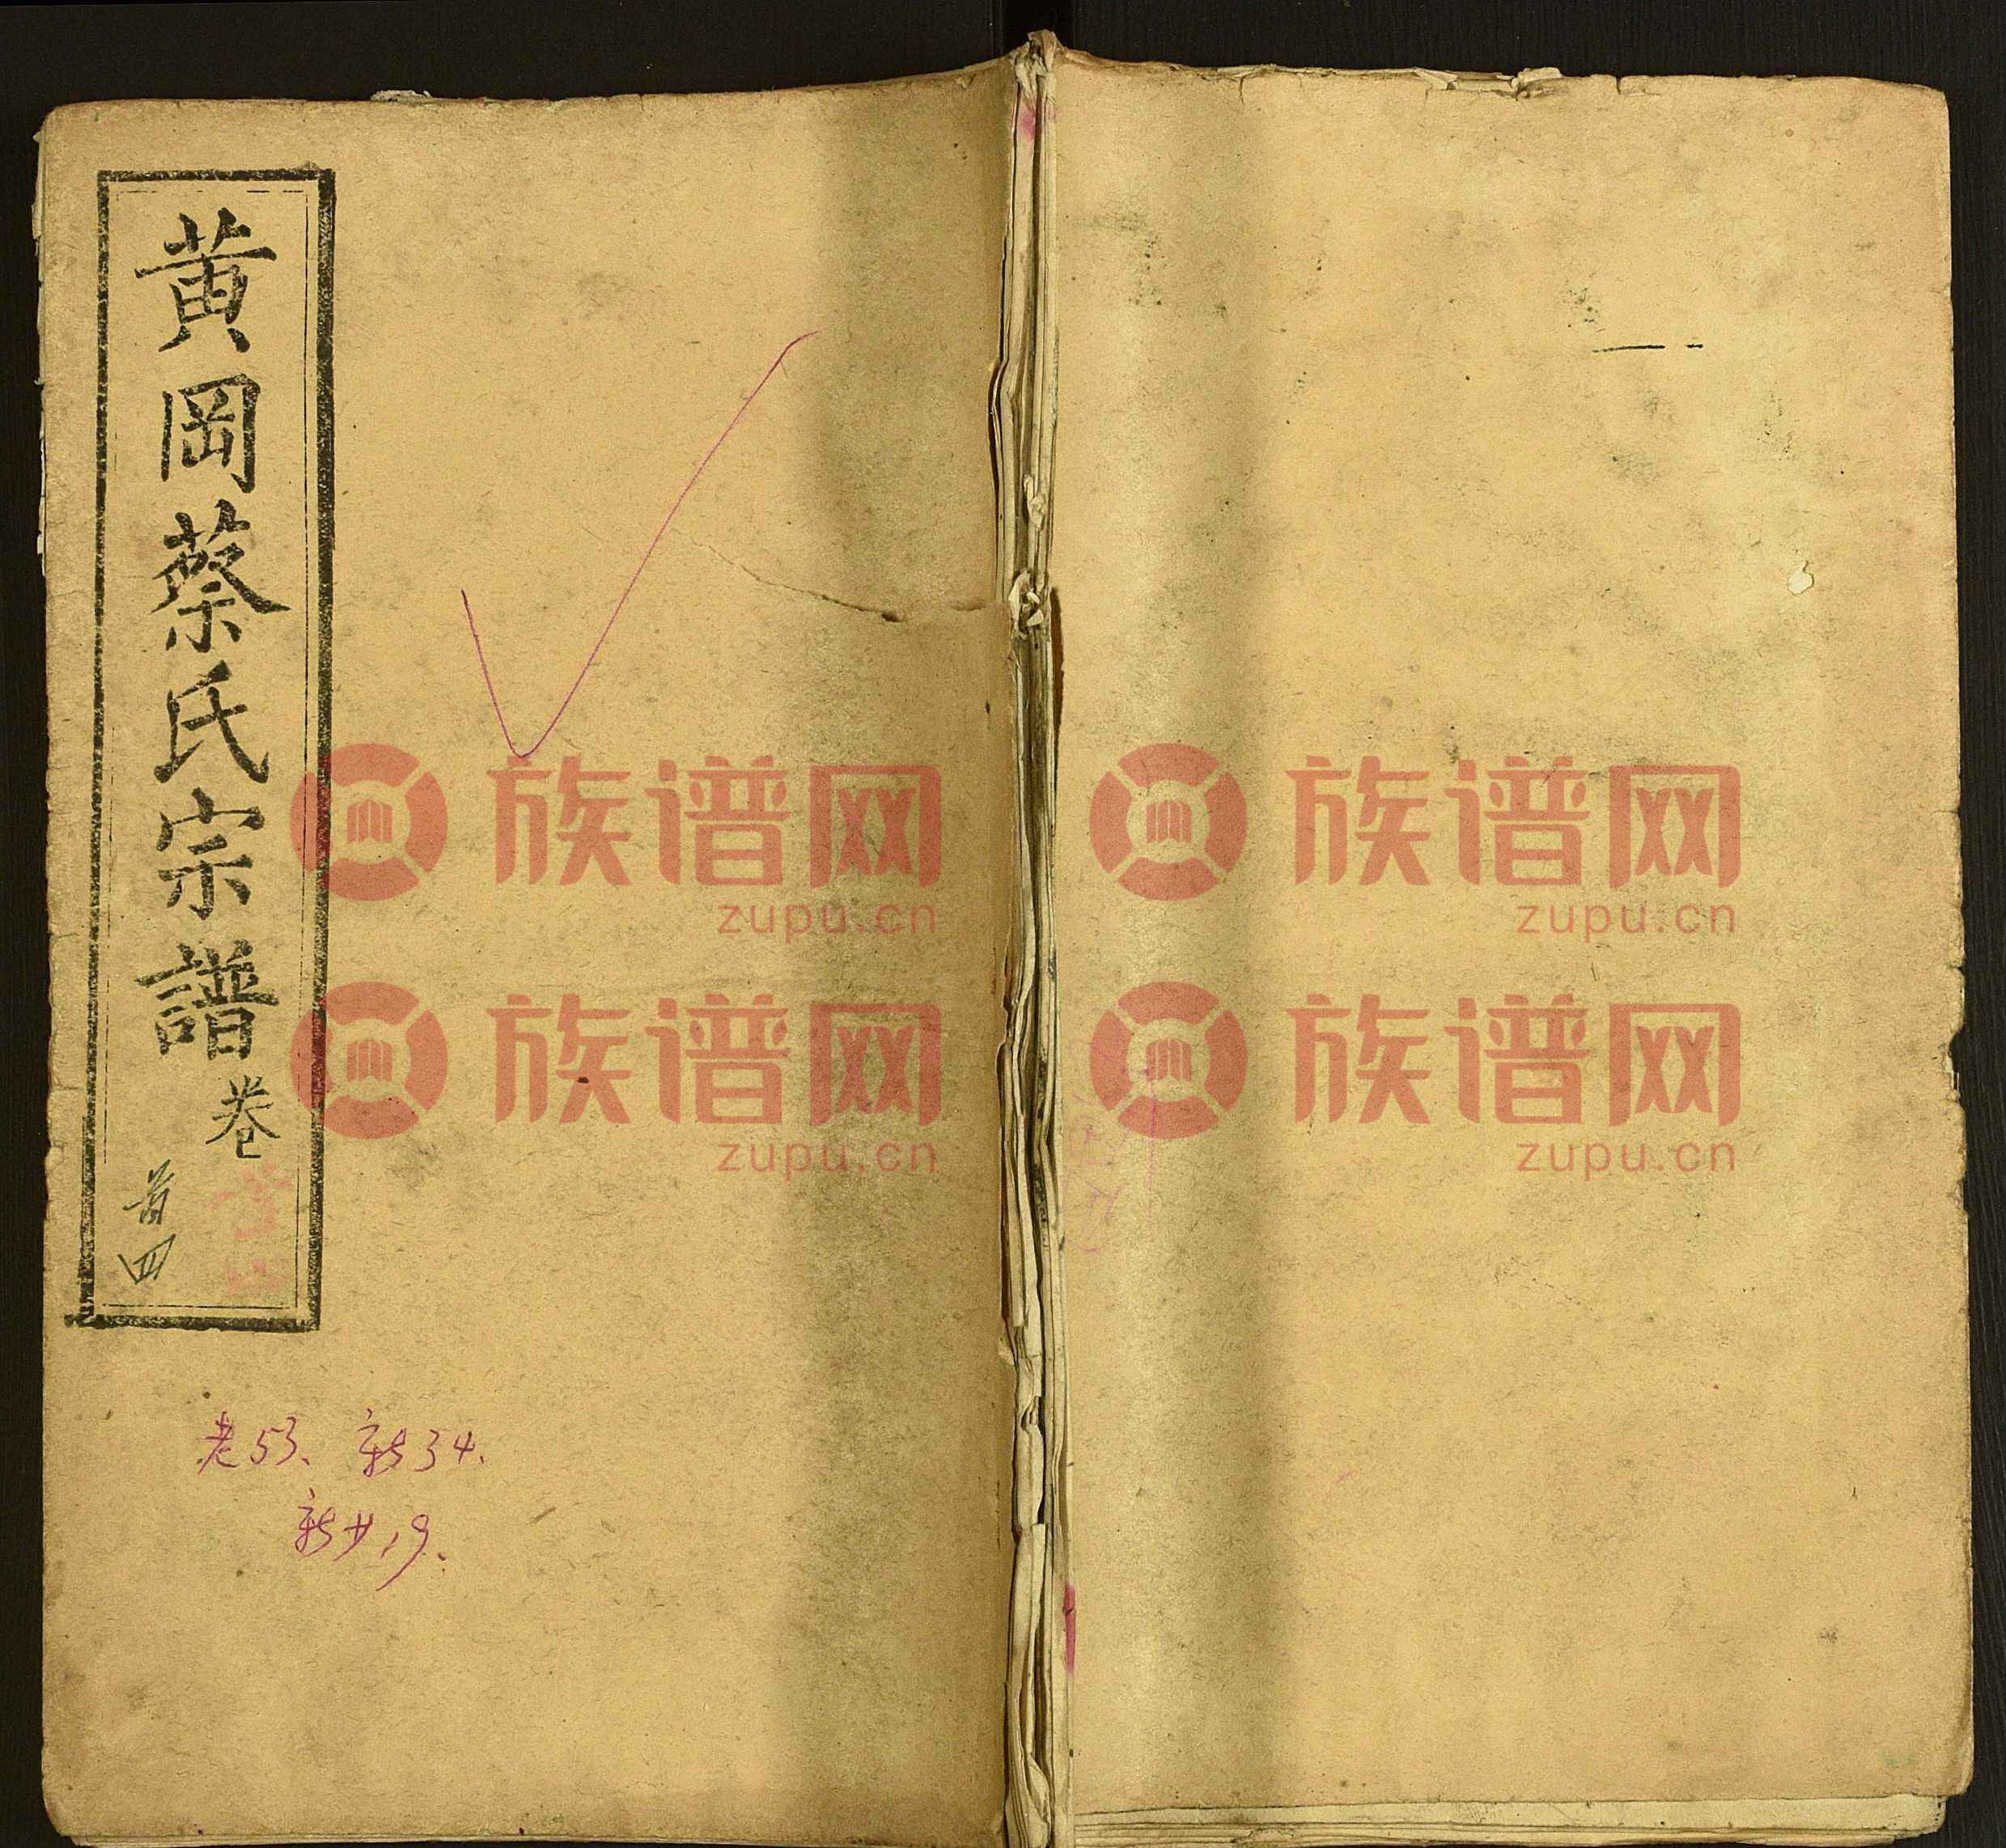 黄岡蔡氏宗譜卷
首四
老53、新34.
族谱网
zupu.cn
族谱网
zupu.cn
族谱网
zupu.cn
族谱网
zupu.cn